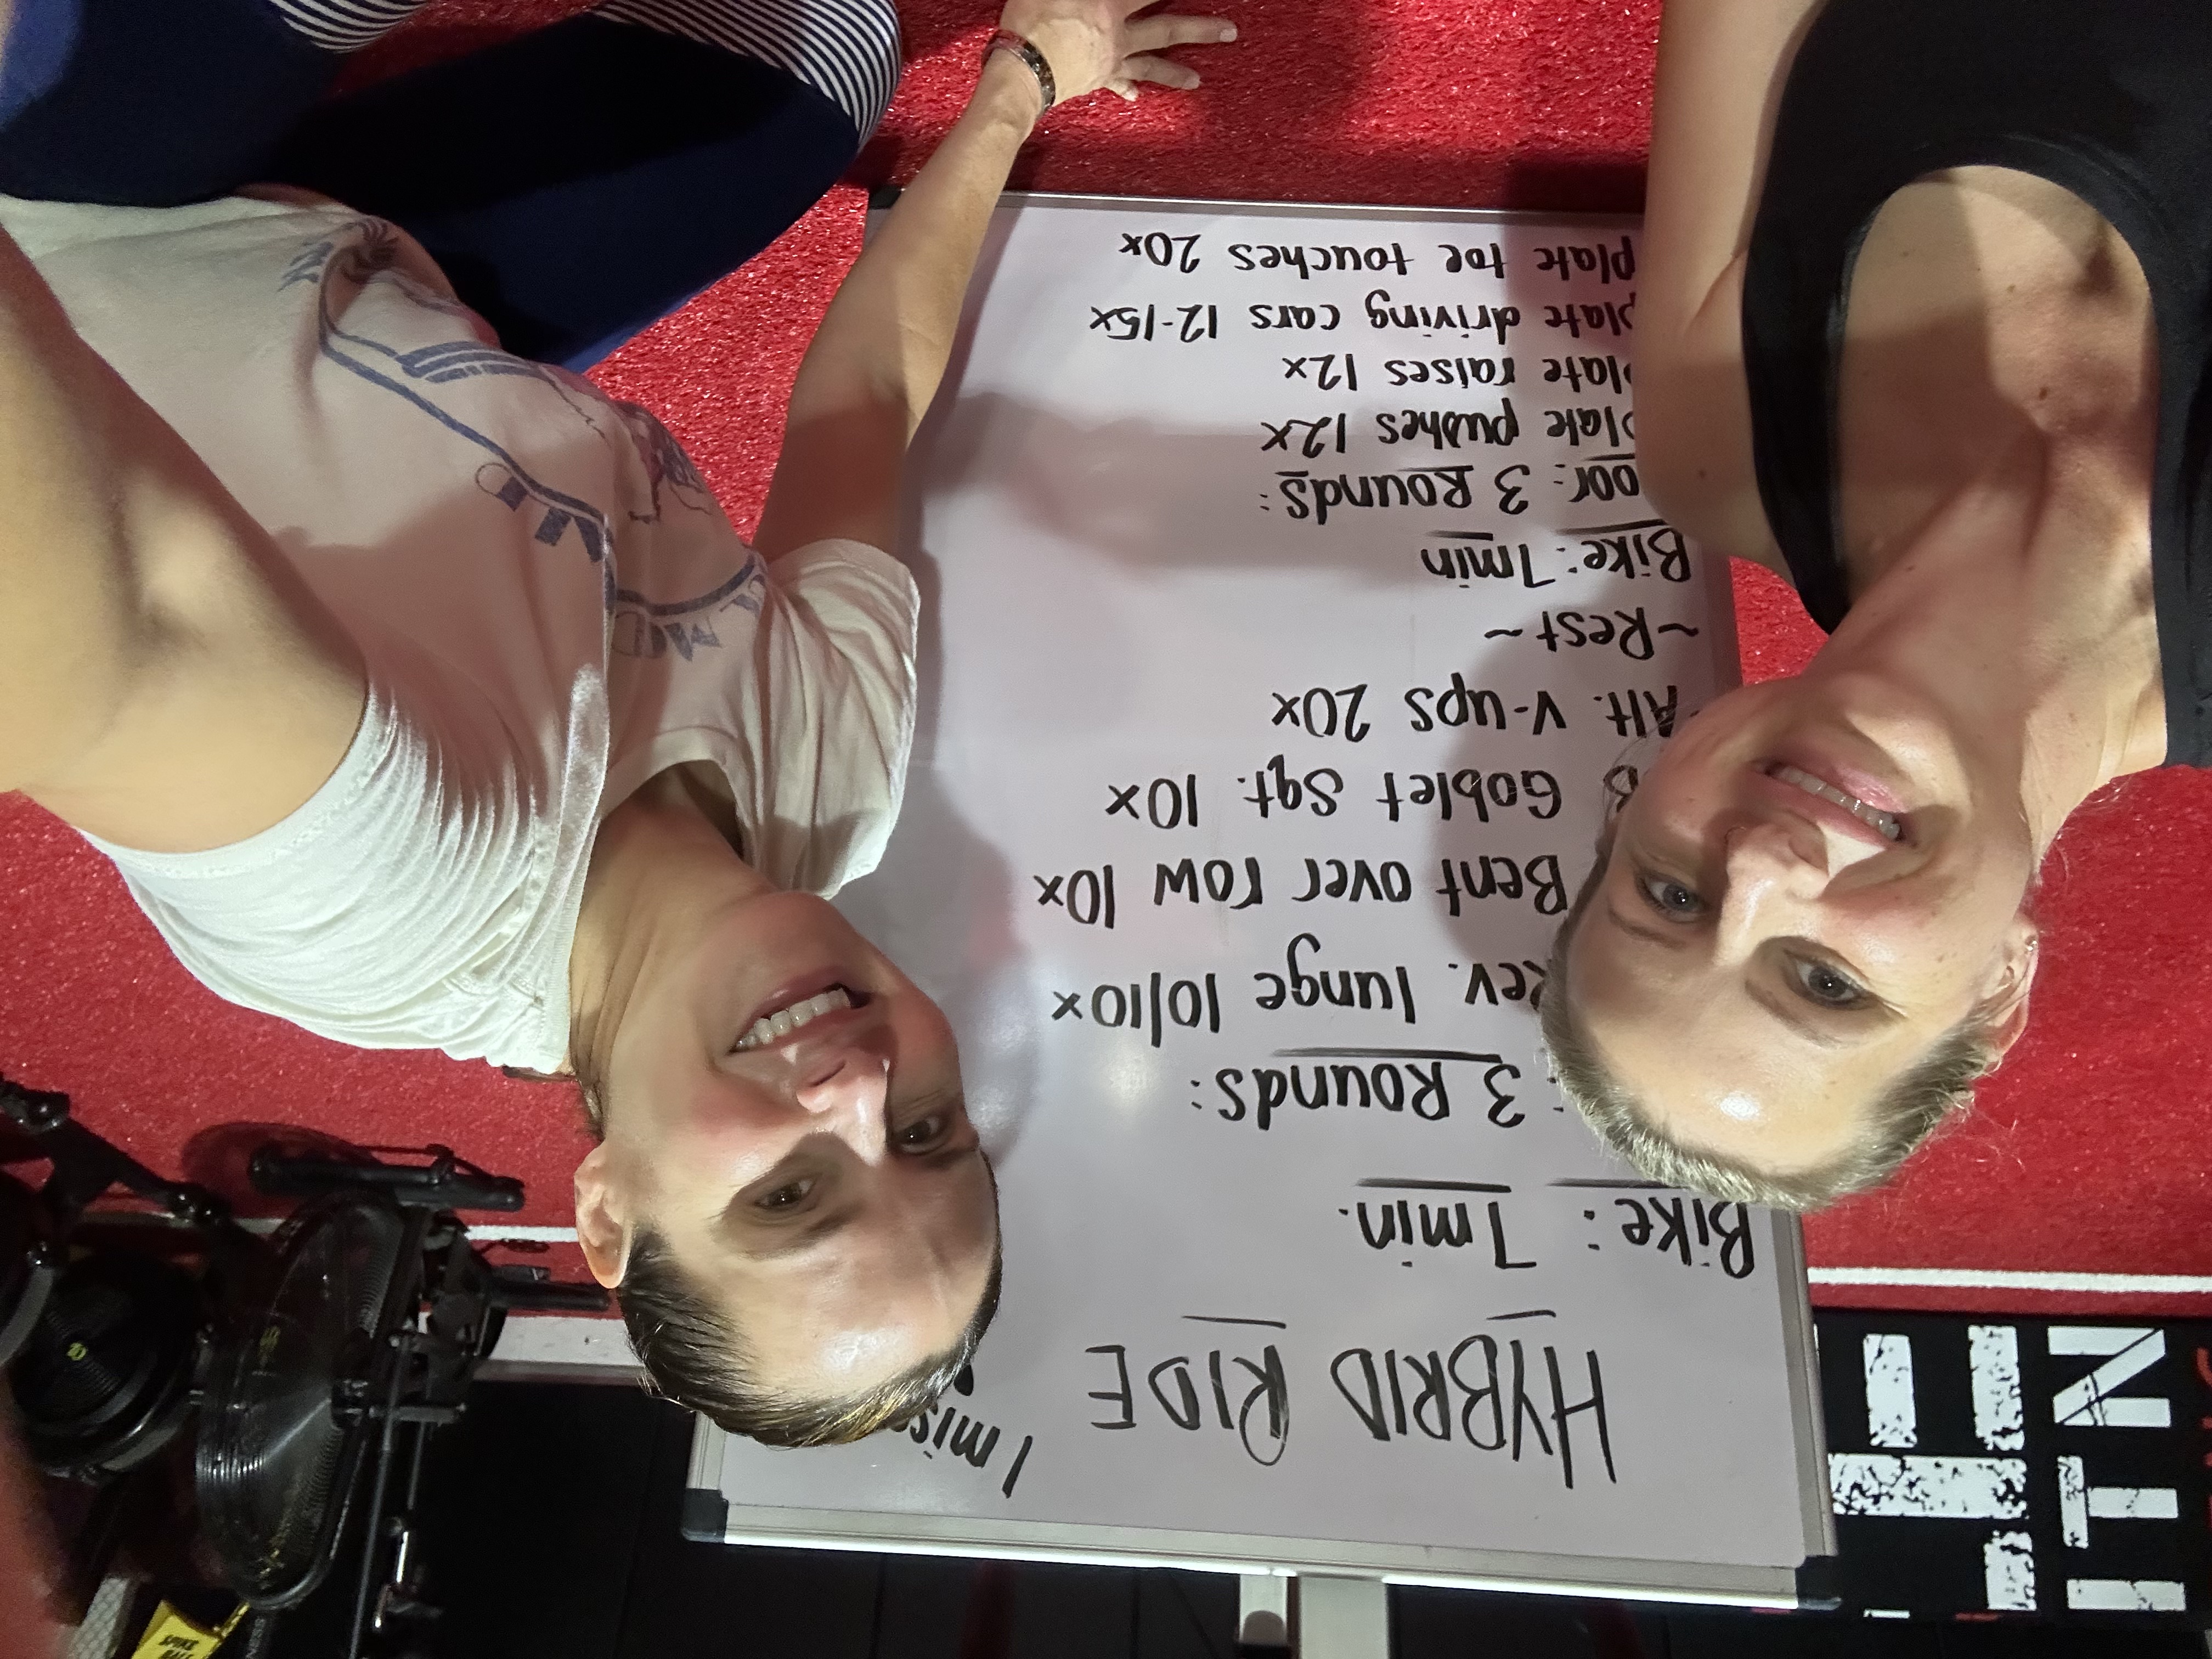 HYBRID RIDE
Bike: 7min.
: 3 Rounds:
lunge 10/10x
Bent over row 10x
Goblet Sqt. 10x
Alt. V-ups 20x
~Rest~
Bike: 7min
3 Rounds:
pushes 12x
raises 12x
driving cars 12-15x
plate toe touches 20x
SPIKE
BALL